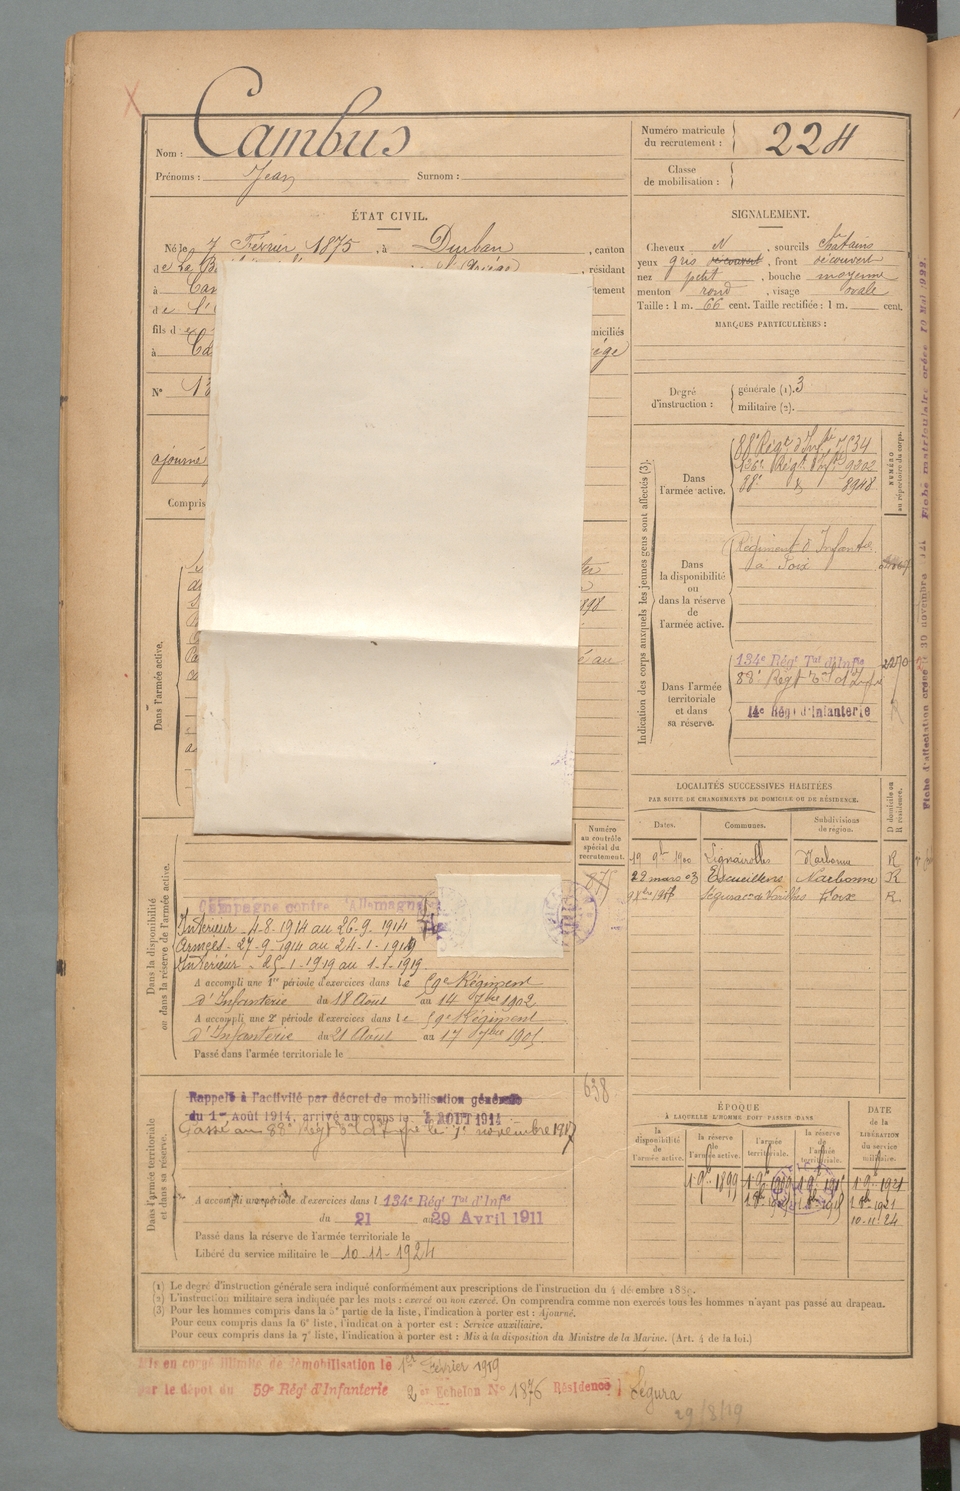 Nom : Cambus
Prénoms : Jean Surnom :
Numéro matricule du recrutement : 224
Classe de mobilisation :
ÉTAT CIVIL.
Né le 7 Février 1875, à Durban, canton
de La B (Ariège), résidant
à Cam tement
de l'
fils d miciliés
à Ca iège
N° 13
ajourné
Compris
SIGNALEMENT.
Cheveux N, sourcils chatains
yeux gris découvert, front découvert
nez petit, bouche moyenne
menton rond, visage ovale
Taille : 1 m. 66 cent. Taille rectifiée : 1 m. cent.
MARQUES PARTICULIÈRES :
Degré d'instruction : générale (1). 3
militaire (2).
Indication des corps auxquels les jeunes gens sont affectés (3).
NUMÉRO au répertoire du corps.
Dans l'armée active.
88e Régt d'Infie 7534
126e Régt d'Infie 9202
88e 8948
Dans la disponibilité ou dans la réserve de l'armée active.
Régiment d'Infanterie
à Foix
Dans l'armée territoriale et dans sa réserve.
134e Régt Tal d'Infie 2270
88e Régt
14e Régt d'Infanterie
Dans l'armée active.
1898
é au
LOCALITÉS SUCCESSIVES HABITÉES
PAR SUITE DE CHANGEMENTS DE DOMICILE OU DE RÉSIDENCE.
Dates. Communes. Subdivisions de région. D domicile ou R résidence.
19 9bre 1900 Lignairolles Narbonne R
22 mars 03 Escueillens Narbonne R
Foix R.
Numéro au contrôle spécial du recrutement.
Dans la disponibilité ou dans la réserve de l'armée active.
Campagne contre l'Allemagne
Intérieur - 4-8-1914 au 26-9-1914
Armées - 27-9-1914 au 24-1-1919
Intérieur - 25-1-1919 au
A accompli une 1re période d'exercices dans le 59e Régiment
d'Infanterie du 18 Août au 14 7bre 1902
A accompli une 2e période d'exercices dans le 59e Régiment
d'Infanterie du 21 Août au 17 7bre 1905
Passé dans l'armée territoriale le
Dans l'armée territoriale et dans sa réserve.
638
Rappelé à l'activité par décret de mobilisation générale
du 1er Août 1914, arrivé au corps le 4 AOUT 1914
Passé au 88e Régt le 1er novembre 1917
A accompli une période d'exercices dans l 134e Régt Tal d'Infie
du 21 au 29 Avril 1911
Passé dans la réserve de l'armée territoriale le
Libéré du service militaire le 10-11-1924
ÉPOQUE
À LAQUELLE L'HOMME DOIT PASSER DANS
la disponibilité de l'armée active. la réserve de l'armée active. l'armée territoriale. la réserve de l'armée territoriale.
DATE de la LIBÉRATION du service militaire.
1.9.1899 1.9.1921
1921
10-11-24
(1) Le degré d'instruction générale sera indiqué conformément aux prescriptions de l'instruction du 4 décembre 1889.
(2) L'instruction militaire sera indiquée par les mots : exercé ou non exercé. On comprendra comme non exercés tous les hommes n'ayant pas passé au drapeau.
(3) Pour les hommes compris dans la 5e partie de la liste, l'indication à porter est : Ajourné.
Pour ceux compris dans la 6e liste, l'indication à porter est : Service auxiliaire.
Pour ceux compris dans la 7e liste, l'indication à porter est : Mis à la disposition du Ministre de la Marine. (Art. 4 de la loi.)
Mis en congé illimité de démobilisation le 1er Février 1919
par le dépot du 59e Régt d'Infanterie 2 Echelon N° 1876 Résidence Ségura
29/8/19
Fiche d'affectation créée le 30 novembre Fiche matriculaire créée 10 Mai 1922.